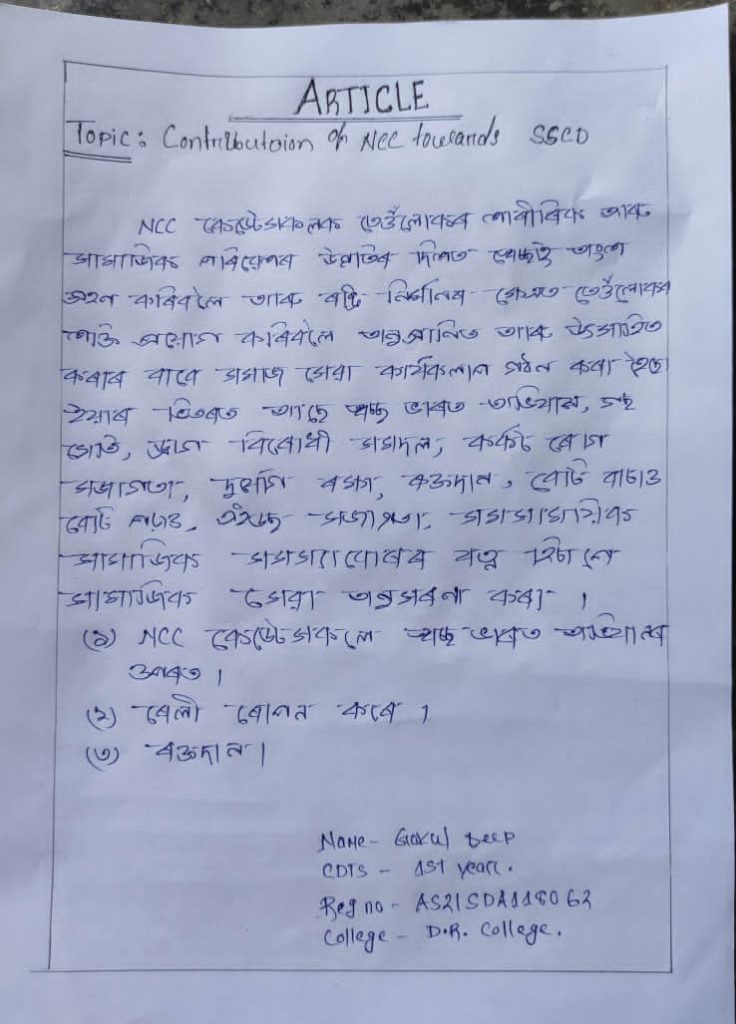 ARTICLE
Topic: Contributaion of NCC towards SSCD
NCC কেডেটসকলক তেওঁলোকৰ শাৰীৰিক আৰু
সামাজিক পৰিৱেশৰ উন্নতিৰ দিশত স্বেচ্ছাই অংশ
গ্ৰহন কৰিবলৈ আৰু ৰাষ্ট্ৰ নিৰ্মানৰ ক্ষেত্ৰত তেওঁলোকৰ
শক্তি প্ৰয়োগ কৰিবলৈ অনুপ্ৰানিত আৰু উৎসাহিত
কৰাৰ বাবে সমাজ সেৱা কাৰ্যকলাপ গঠন কৰা হৈছে
ইয়াৰ ভিতৰত আছে স্বচ্ছ ভাৰত অভিযান, গছ
ড্ৰাগ বিৰোধী সমদল, কৰ্কট ৰোগ
সজাগতা, দুৰ্যোগ তক্তদান, বেটি বাচাও
বেটি পঢ়াও, এইডছ সজাগতা,
সামাজিক যত্ন
সামাজিক সেৱা অনুসৰণ কৰা ।
(১) NCC কেডেটসকলে স্বচ্ছ ভাৰত অভিযানৰ
ওপৰত ।
(২) ৰেলী ৰোপন কৰে ।
(৩) ৰক্তদান ।
Name - Gokul Deep
CDTS - 1st year.
Reg no - AS21SDA118062
College - D.R. College.